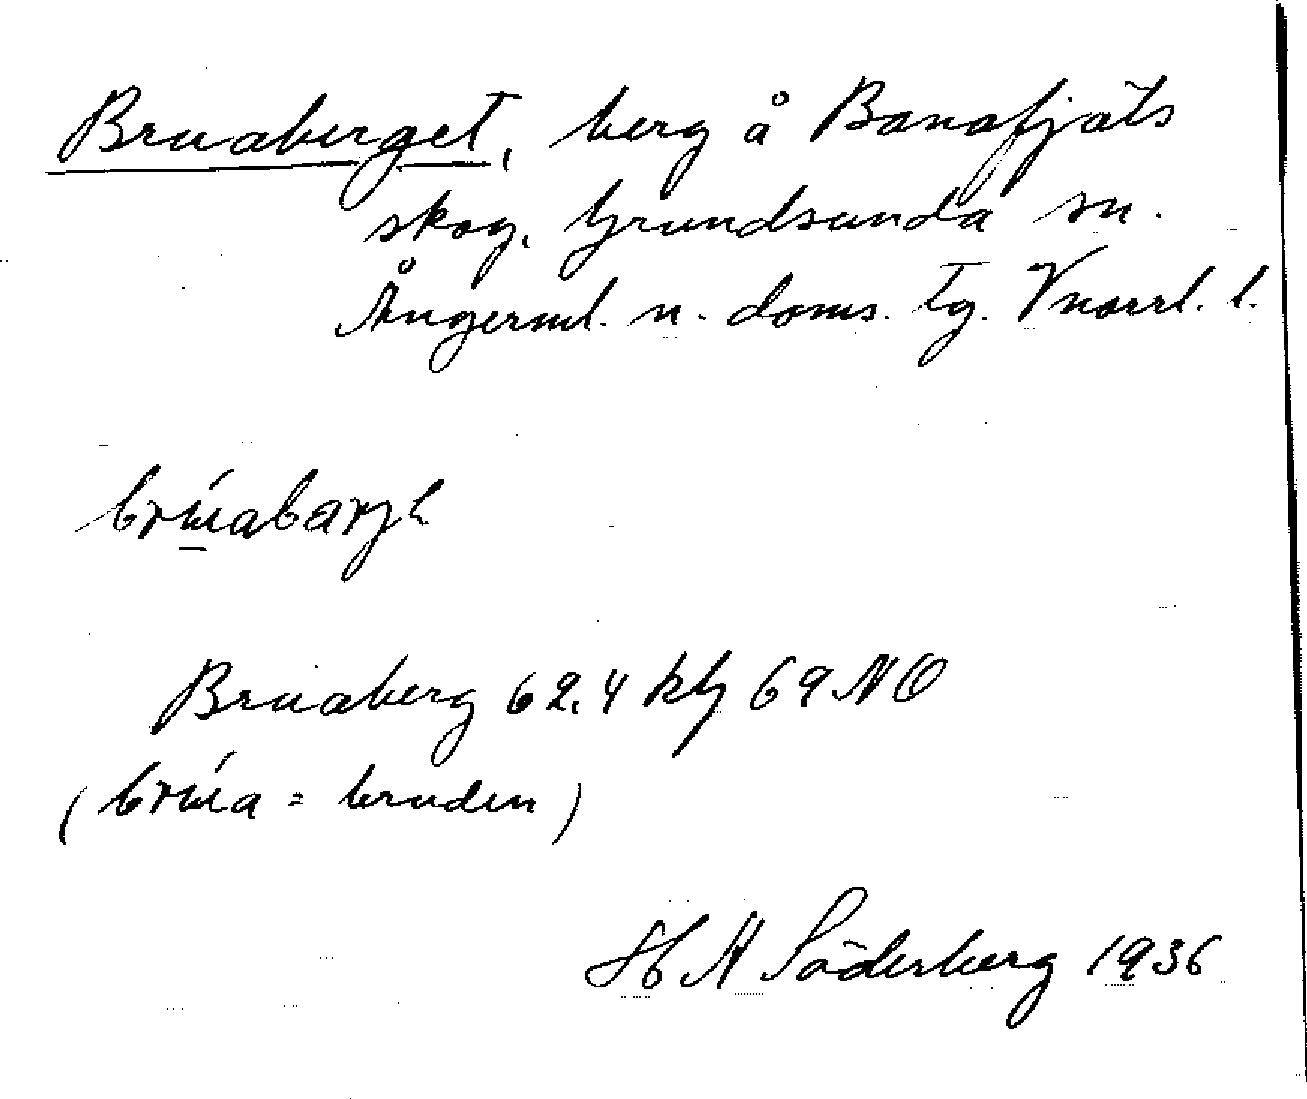 Bruaberget, berg å Banafjäls
skog, Grundsunda sn.
Ångerml. n. doms. tg. Vnorrl. l.
brúabarjł
Bruaberg 62.4 kbl 69 NO
(brúa = bruden)
H A Söderberg 1936